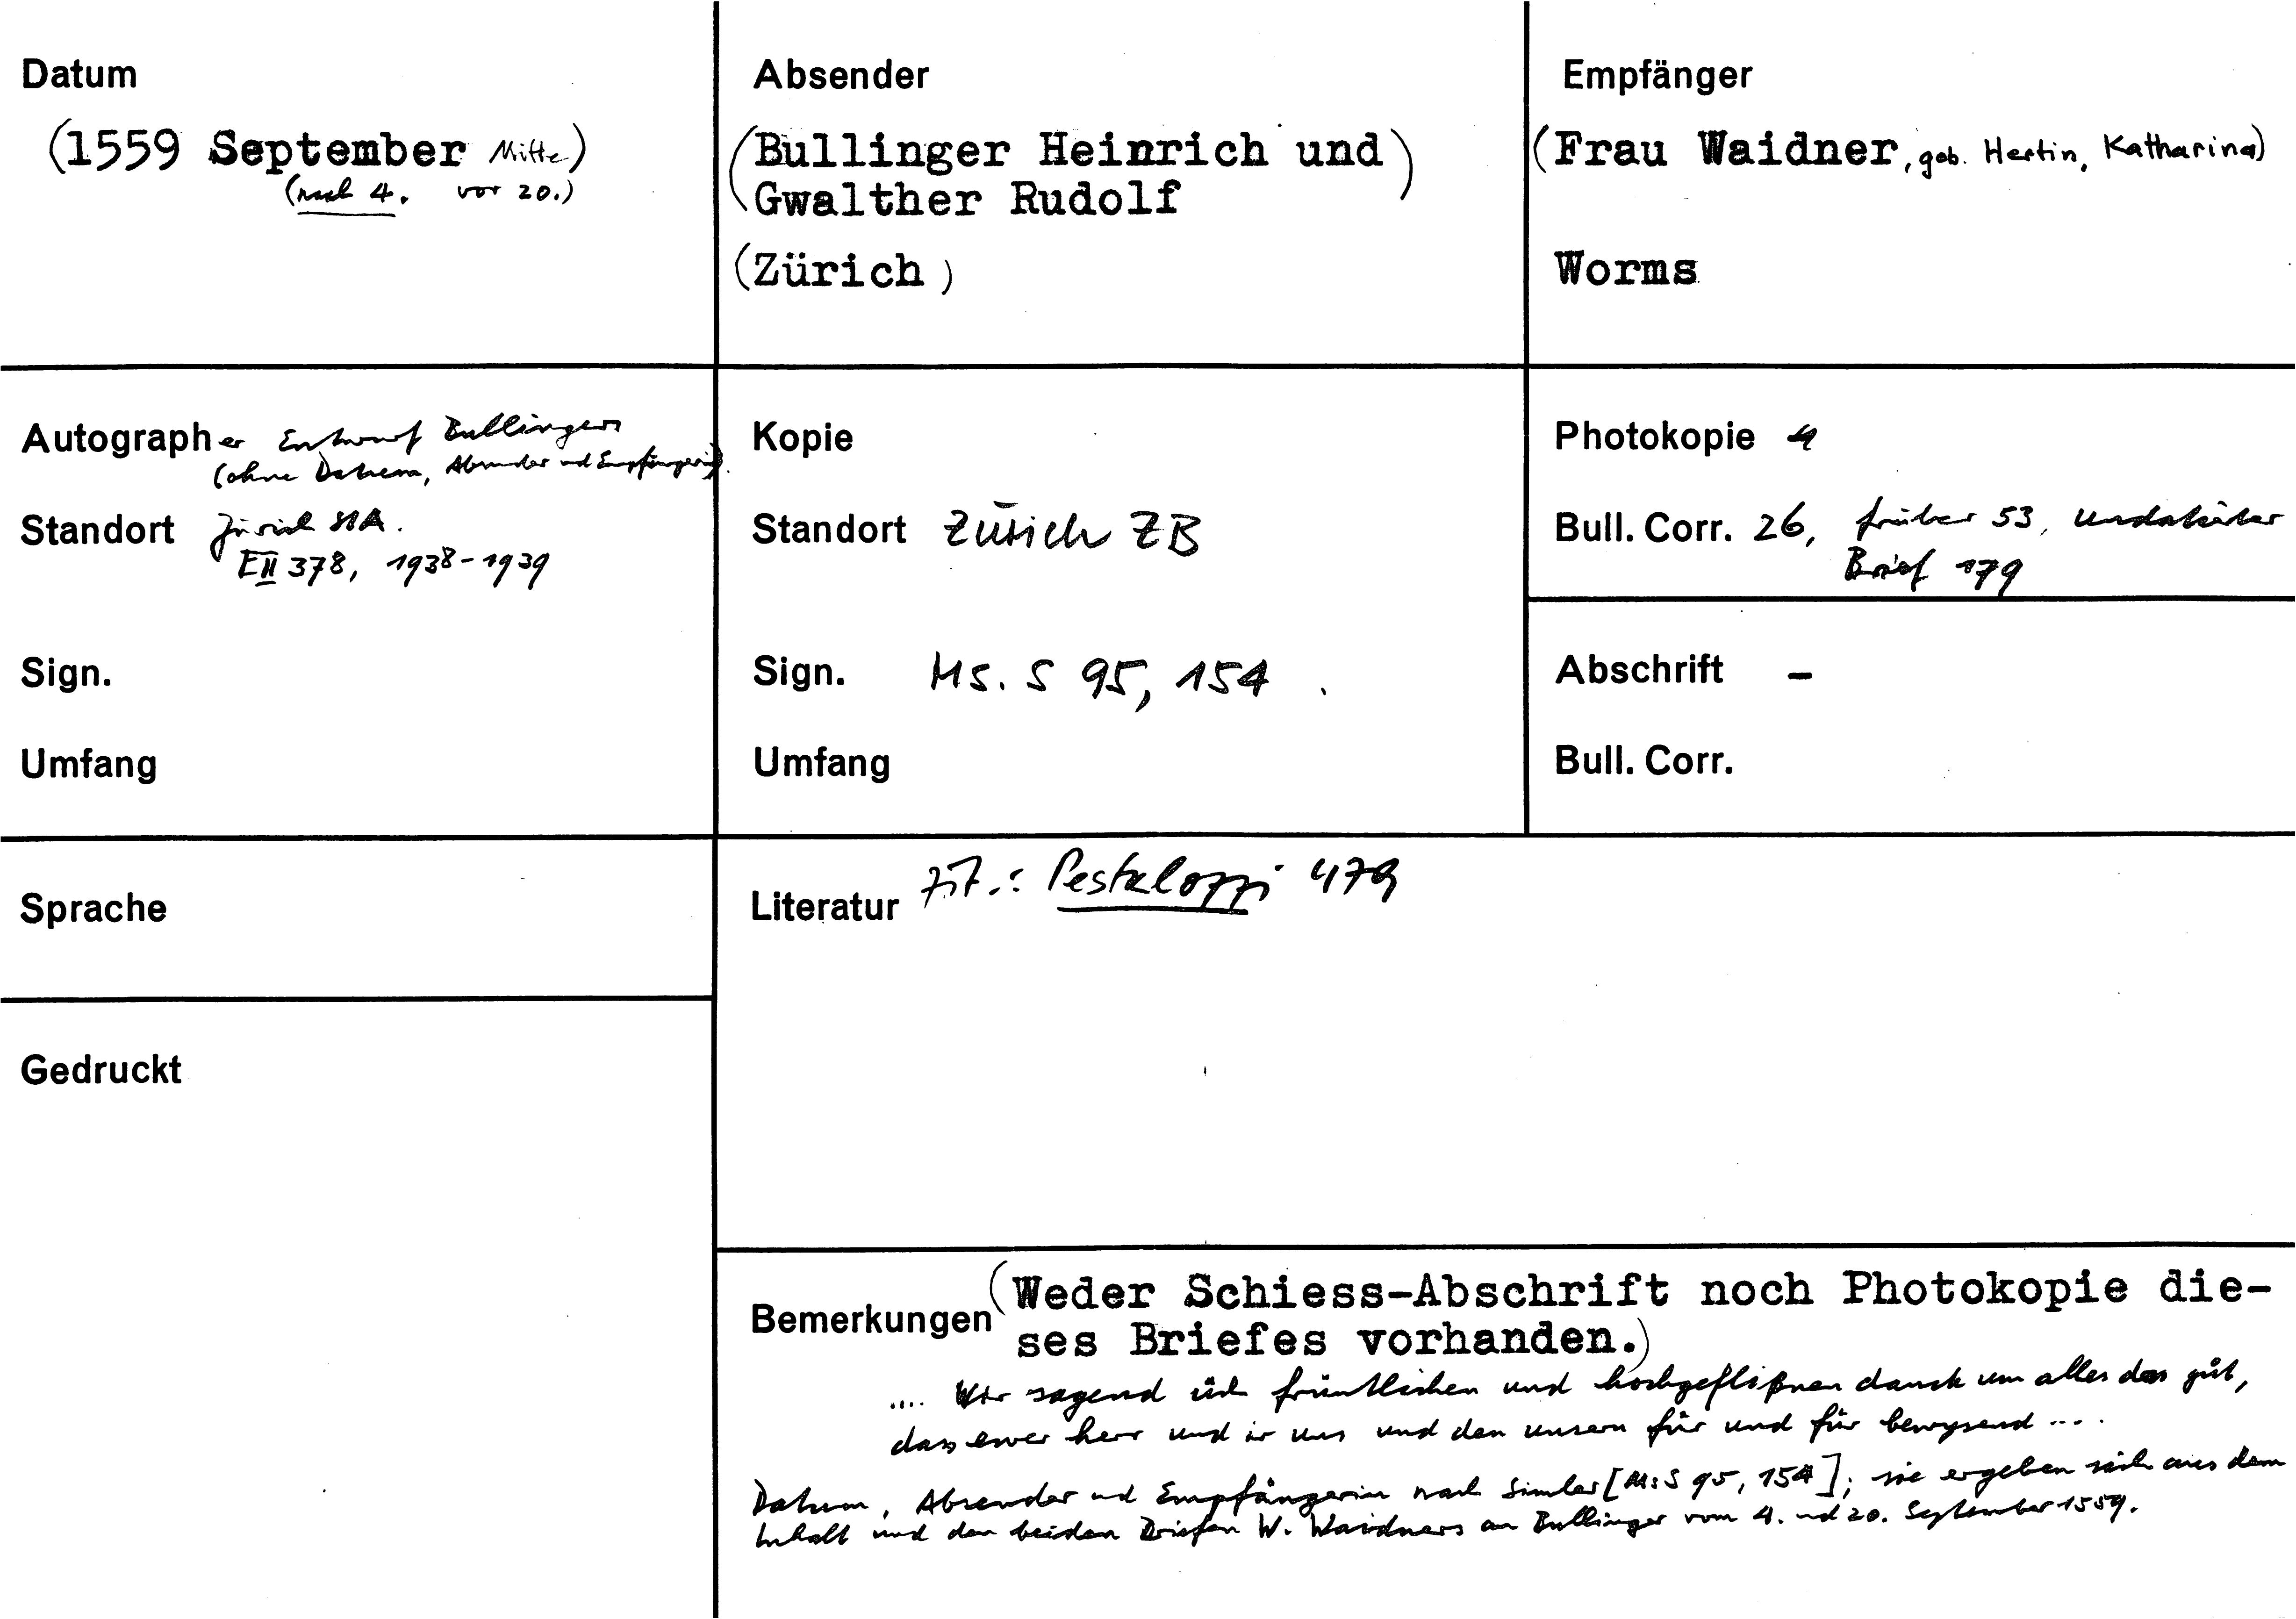 Datum
(1559 September Mitte)
(nach 4. vor 20.)
Absender
(Bullinger Heinrich und
Gwalther Rudolf)
(Zürich)
Empfänger
(Frau Waidner, geb. Hertin, Katharina)
Worms
Autographer Entwurf Bullingers
(ohne Datum, Absender und Empfängerin).
Standort Zürich StA.
E II 378, 1938-1939
Sign.
Umfang
Kopie
Standort Zürich ZB
Sign. Ms. S 95, 154.
Umfang
Photokopie
Bull. Corr. 26, früher 53, undatierter
Brief 179
Abschrift -
Bull. Corr.
Sprache
Literatur zit.: Pestalozzi 479
Gedruckt
Bemerkungen (Weder Schiess-Abschrift noch Photokopie die-
ses Briefes vorhanden.)
.... Wir sagend üch früntlichen und hochgeflißnen danck um alles das gůt,
dass ewer herr und ir uns und den unsern für und für bewysend ....
Datum, Absender und Empfängerin nach Simler [Ms S 95, 154]; sie ergeben sich aus dem
Inhalt und den beiden Briefen W. Waidners an Bullinger vom 4. und 20. September 1559.